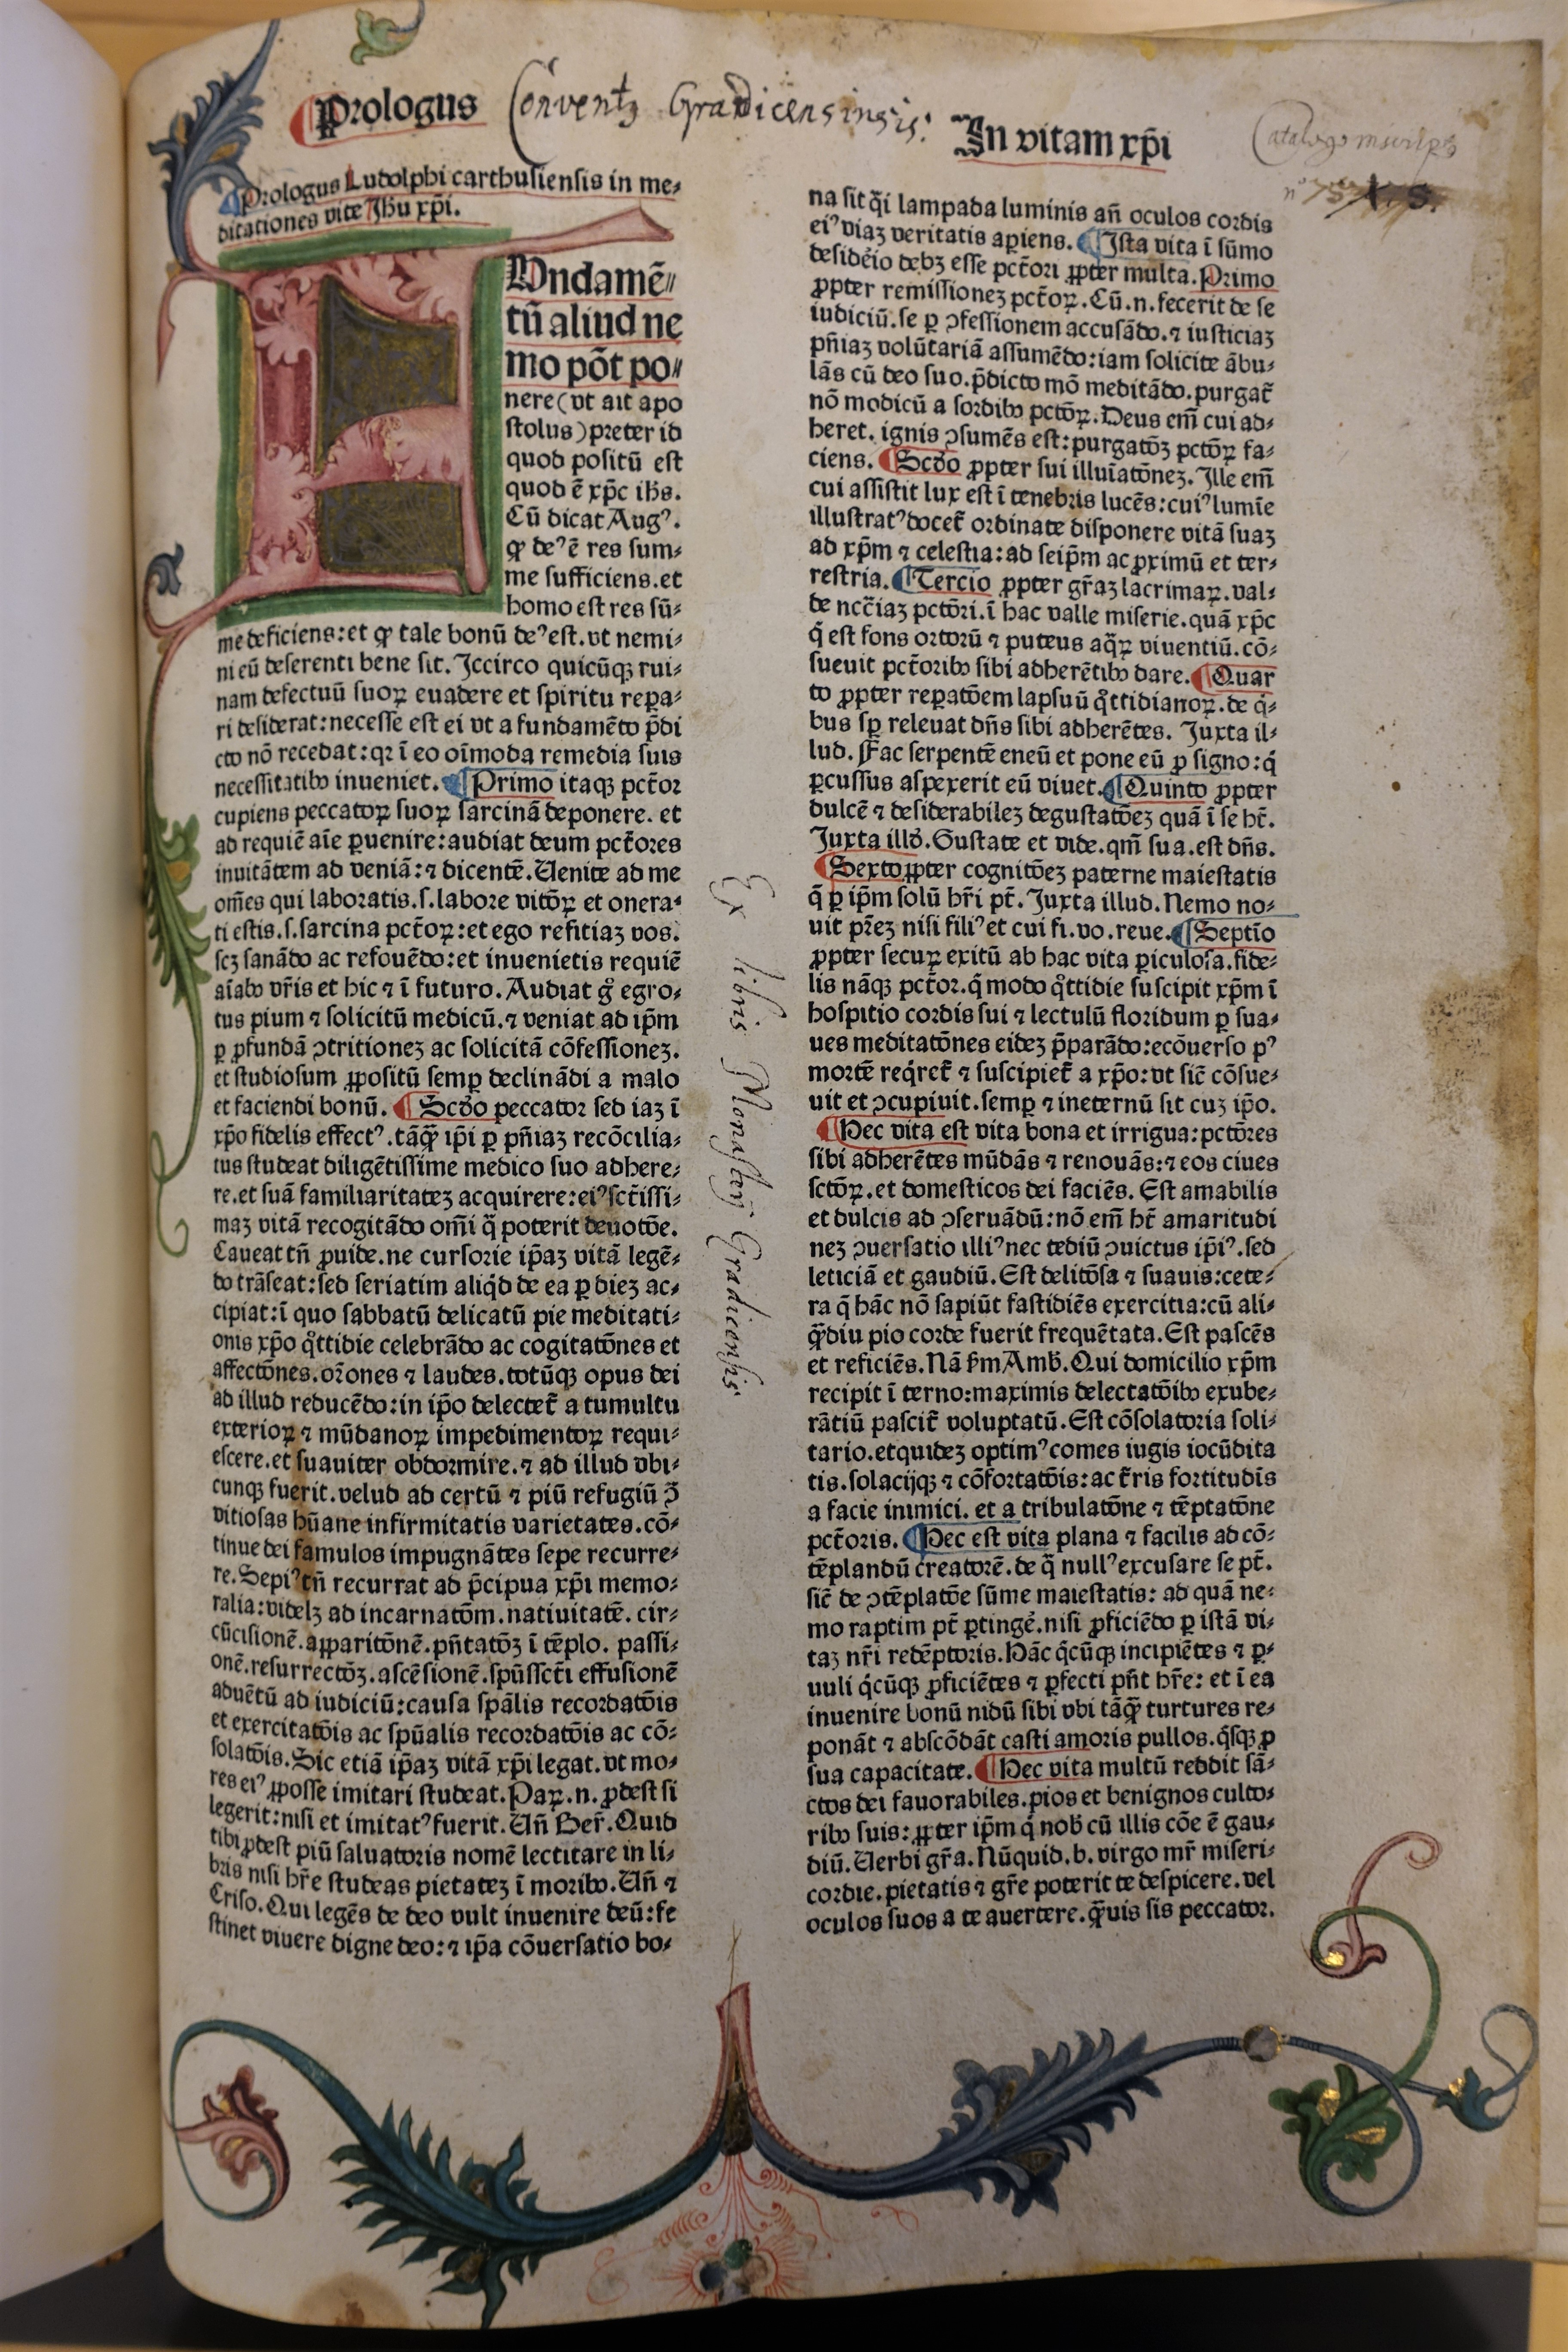 Prologus
Conventꝰ Gradicensis:
In vitam xp̄i
Catalogo inscript9
nº 75
Prologus Ludolphi carthusiensis in me⸗
ditationes vite Jhu xp̄i.
FUndamē⸗
tū aliud ne
mo pōt po⸗
nere (vt ait apo
stolus) preter id
quod positū est
quod ē xp̄c ihs.
Cū dicat Augꝰ.
ꝙ deꝰ ē res sum⸗
me sufficiens. et
homo est res sū⸗
me deficiens: et ꝙ tale bonū deꝰ est. vt nemi⸗
ni eū deserenti bene sit. Iccirco quicūqꝫ rui⸗
nam defectuū suoꝝ euadere et spiritu repa⸗
ri desiderat: necesse est ei vt a fundamēto p̄di
cto nō recedat: qꝛ ī eo oīmoda remedia suis
necessitatibꝰ inueniet. ¶ Primo itaqꝫ pctōr
cupiens peccatoꝝ suoꝝ sarcinā deponere. et
ad requiē aīe ꝑuenire: audiat deum pctōres
inuitātem ad veniā: ⁊ dicentē. Uenite ad me
om̄es qui laboratis. s. labore vitōꝝ et onera⸗
ti estis. s. sarcina pctōꝝ: et ego reficiaꝫ vos.
scꝫ sanādo ac refouēdo: et inuenietis requiē
aīabꝰ vr̄is et hic ⁊ ī futuro. Audiat gͦ egro⸗
tus pium ⁊ solicitū medicū. ⁊ veniat ad ip̄m
ꝑ ꝓfundā ꝯtritioneꝫ ac solicitā cōfessioneꝫ.
et studiosum ꝓpositū semꝑ declinādi a malo
et faciendi bonū. ¶ Scd̄o peccator sed iaꝫ ī
xp̄o fidelis effectꝰ. tāqͣꝫ ip̄i ꝑ pn̄iaꝫ recōcilia⸗
tus studeat diligētissime medico suo adhere⸗
re. et suā familiaritateꝫ acquirere: eiꝰ sctissi⸗
maꝫ vitā recogitādo om̄i qͣ poterit deuotōe.
Caueat tn̄ ꝓuide. ne cursorie ip̄aꝫ vitā legē⸗
do trāseat: sed seriatim aliqd̄ de ea ꝑ dieꝫ ac⸗
cipiat: ī quo sabbatū delicatū pie meditati⸗
onis xp̄o qͦttidie celebrādo ac cogitatōnes et
affectōnes. orōnes ⁊ laudes. totūqꝫ opus dei
ad illud reducēdo: in ip̄o delectet̄ a tumultu
exterioꝝ ⁊ mūdanoꝝ impedimentoꝝ requi⸗
escere. et suauiter obdormire. ⁊ ad illud vbi⸗
cunqꝫ fuerit. velud ad certū ⁊ piū refugiū ꝯ̄
vitiosas hūane infirmitatis varietates. cō⸗
tinue dei famulos impugnātes sepe recurre⸗
re. Sepiꝰ tn̄ recurrat ad p̄cipua xp̄i memo⸗
ralia: videlꝫ ad incarnatōm. natiuitatē. cir⸗
cūcisionē. apparitōnē. pn̄tatōꝫ ī tēplo. passi⸗
onē. resurrectōꝫ. ascēsionē. spūssct̄i effusionē
aduētū ad iudiciū: causa spālis recordatōis
et exercitatōis ac spūalis recordatōis ac cō⸗
solatōis. Sic etiā ip̄aꝫ vitā xp̄i legat. vt mo⸗
res eiꝰ ꝓposse imitari studeat. Paꝝ. n. ꝓdest si
legerit: nisi et imitatꝰ fuerit. Un̄ Ber̄. Quid
tibi ꝓdest piū saluatoris nomē lectitare in li⸗
bris nisi hr̄e studeas pietateꝫ ī moribꝰ. Un̄ ⁊
Criso. Qui legēs de deo vult inuenire deū: fe
stinet viuere digne deo: ⁊ ip̄a cōuersatio bo⸗
Ex libris Monasterij Gradicensis
na sit qͣi lampada luminis an̄ oculos cordis
eiꝰ viaꝫ veritatis aperiens. ¶ Ista vita ī sūmo
desideīo debꝫ esse pctōri ꝓpter multa. Primo
ꝓpter remissioneꝫ pctōꝝ. Cū. n. fecerit de se
iudiciū. se ꝑ ꝯfessionem accusādo. ⁊ iusticiaꝫ
pn̄iaꝫ volūtariā assumēdo: iam solicite ābu⸗
lās cū deo suo. p̄dicto mō meditādo. purgat̄
nō modicū a sordibꝰ pctōꝝ. Deus em̄ cui ad⸗
heret. ignis ꝯsumēs est: purgatōꝫ pctōꝝ fa⸗
ciens. ¶ Scd̄o ꝓpter sui illuīatōneꝫ. Ille em̄
cui assistit lux est ī tenebris lucēs: cuiꝰ lumīe
illustratꝰ docet̄ ordinate disponere vitā suaꝫ
ad xp̄m ⁊ celestia: ad seip̄m ac ꝓximū et ter⸗
restria. ¶ Tercio ꝓpter gr̄aꝫ lacrimaꝝ. val⸗
de nccīaꝫ pctōri. ī hac valle miserie. quā xp̄c
q̄ est fons ortorū ⁊ puteus aqͣꝝ viuentiū. cō⸗
sueuit pctōribꝰ sibi adherētibꝰ dare. ¶ Quar
to ꝓpter reparatōem lapsuū qͦttidianoꝝ. de qͥ⸗
bus sꝑ releuat dn̄s sibi adherētes. Juxta il⸗
lud. Fac serpentē eneū et pone eū ꝓ signo: qͥ
ꝑcussus aspexerit eū viuet. ¶ Quinto ꝓpter
dulcē ⁊ desiderabileꝫ degustatōeꝫ quā ī se ht̄.
Juxta illd̄. Gustate et vide. qm̄ sua. est dn̄s.
¶ Sexto ꝓpter cognitōeꝫ paterne maiestatis
q̄ ꝑ ip̄m solū hr̄i pt̄. Juxta illud. Nemo no⸗
uit pr̄eꝫ nisi filiꝰ et cui fi. vo. reue. ¶ Septīo
ꝓpter secuꝝ exitū ab hac vita ꝑiculosa. fide⸗
lis nāqꝫ pctōr. qͥ modo qͦttidie suscipit xp̄m ī
hospitio cordis sui ⁊ lectulū floridum ꝑ sua⸗
ues meditatōnes eideꝫ p̄parādo: ecōuerso pꝰ
mortē reqͥret̄ ⁊ suscipiet̄ a xp̄o: vt sic̄ cōsue⸗
uit et ꝯcupiuit. semꝑ ⁊ ineternū sit cuꝫ ip̄o.
¶ Hec vita est vita bona et irrigua: pctōres
sibi adherētes mūdās ⁊ renouās: ⁊ eos ciues
sctōꝝ. et domesticos dei faciēs. Est amabilis
et dulcis ad ꝯseruādū: nō em̄ ht̄ amaritudi
neꝫ ꝯuersatio illiꝰ nec tediū ꝯuictus ip̄iꝰ. sed
leticiā et gaudiū. Est delitōsa ⁊ suauis: cete⸗
ra q̄ hāc nō sapiūt fastidiēs exercitia: cū ali⸗
qͣꝫdiu pio corde fuerit frequētata. Est pascēs
et reficiēs. Nā ẜm Amb̄. Qui domicilio xp̄m
recipit ī terno: maximis delectatōibꝰ exube⸗
rātiū pascit̄ voluptatū. Est cōsolatoria soli⸗
tario. etquideꝫ optimꝰ comes iugis iocūdita
tis. solacijqꝫ ⁊ cōfortatōis: ac t̄ris fortitudīs
a facie inimici. et a tribulatōne ⁊ tēptatōne
pctōris. ¶ Hec est vita plana ⁊ facilis ad cō⸗
tēplandū creatorē. de qͣ nullꝰ excusare se pt̄.
sic̄ de ꝯtēplatōe sūme maiestatis: ad quā ne⸗
mo raptim pt̄ ꝑtinge̍. nisi ꝓficiēdo ꝑ istā vi⸗
taꝫ nr̄i redēptoris. Hāc qͥcūqꝫ incipiētes ⁊ ꝑ⸗
uuli qͥcūqꝫ ꝓficiētes ⁊ ꝑfecti pn̄t hr̄e: et ī ea
inuenire bonū nidū sibi vbi tāqͣꝫ turtures re⸗
ponāt ⁊ abscōdāt casti amoris pullos. qͥsqꝫ ꝓ
sua capacitate. ¶ Hec vita multū reddit sā⸗
ctos dei fauorabiles. pios et benignos culto⸗
ribꝰ suis: ꝓpter ip̄m qͥ nob̄ cū illis cōe ē gau⸗
diū. Uerbi gr̄a. Nūquid. b. virgo mr̄ miseri⸗
cordie. pietatis ⁊ gr̄e poterit te despicere. vel
oculos suos a te auertere. qͣꝫuis sis peccator.